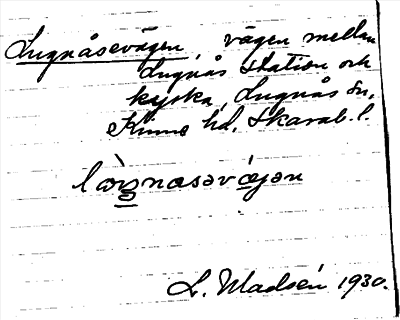 Lugnåsevägen, vägen mellan
Lugnås station och
kyrka, Lugnås sn,
Kinne hd, Skarab. l.
L. Madsén 1930.